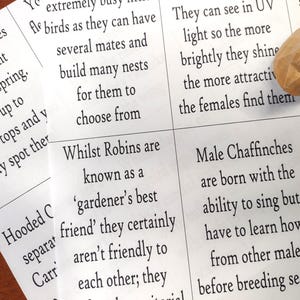 extremely busy
birds as they can have
several mates and
build many nests
for them to
choose from
They can see in UV
light so the more
brightly they shine
the more attractiv
the females find them
Whilst Robins are
known as a
'gardener's best
friend' they certainly
aren't friendly to
each other; they
Male Chaffinches
are born with the
ability to sing but
have to learn how
from other male
before breeding se
spring.
up to
tops and y
y spot ther
Hooded C
separa
Carri